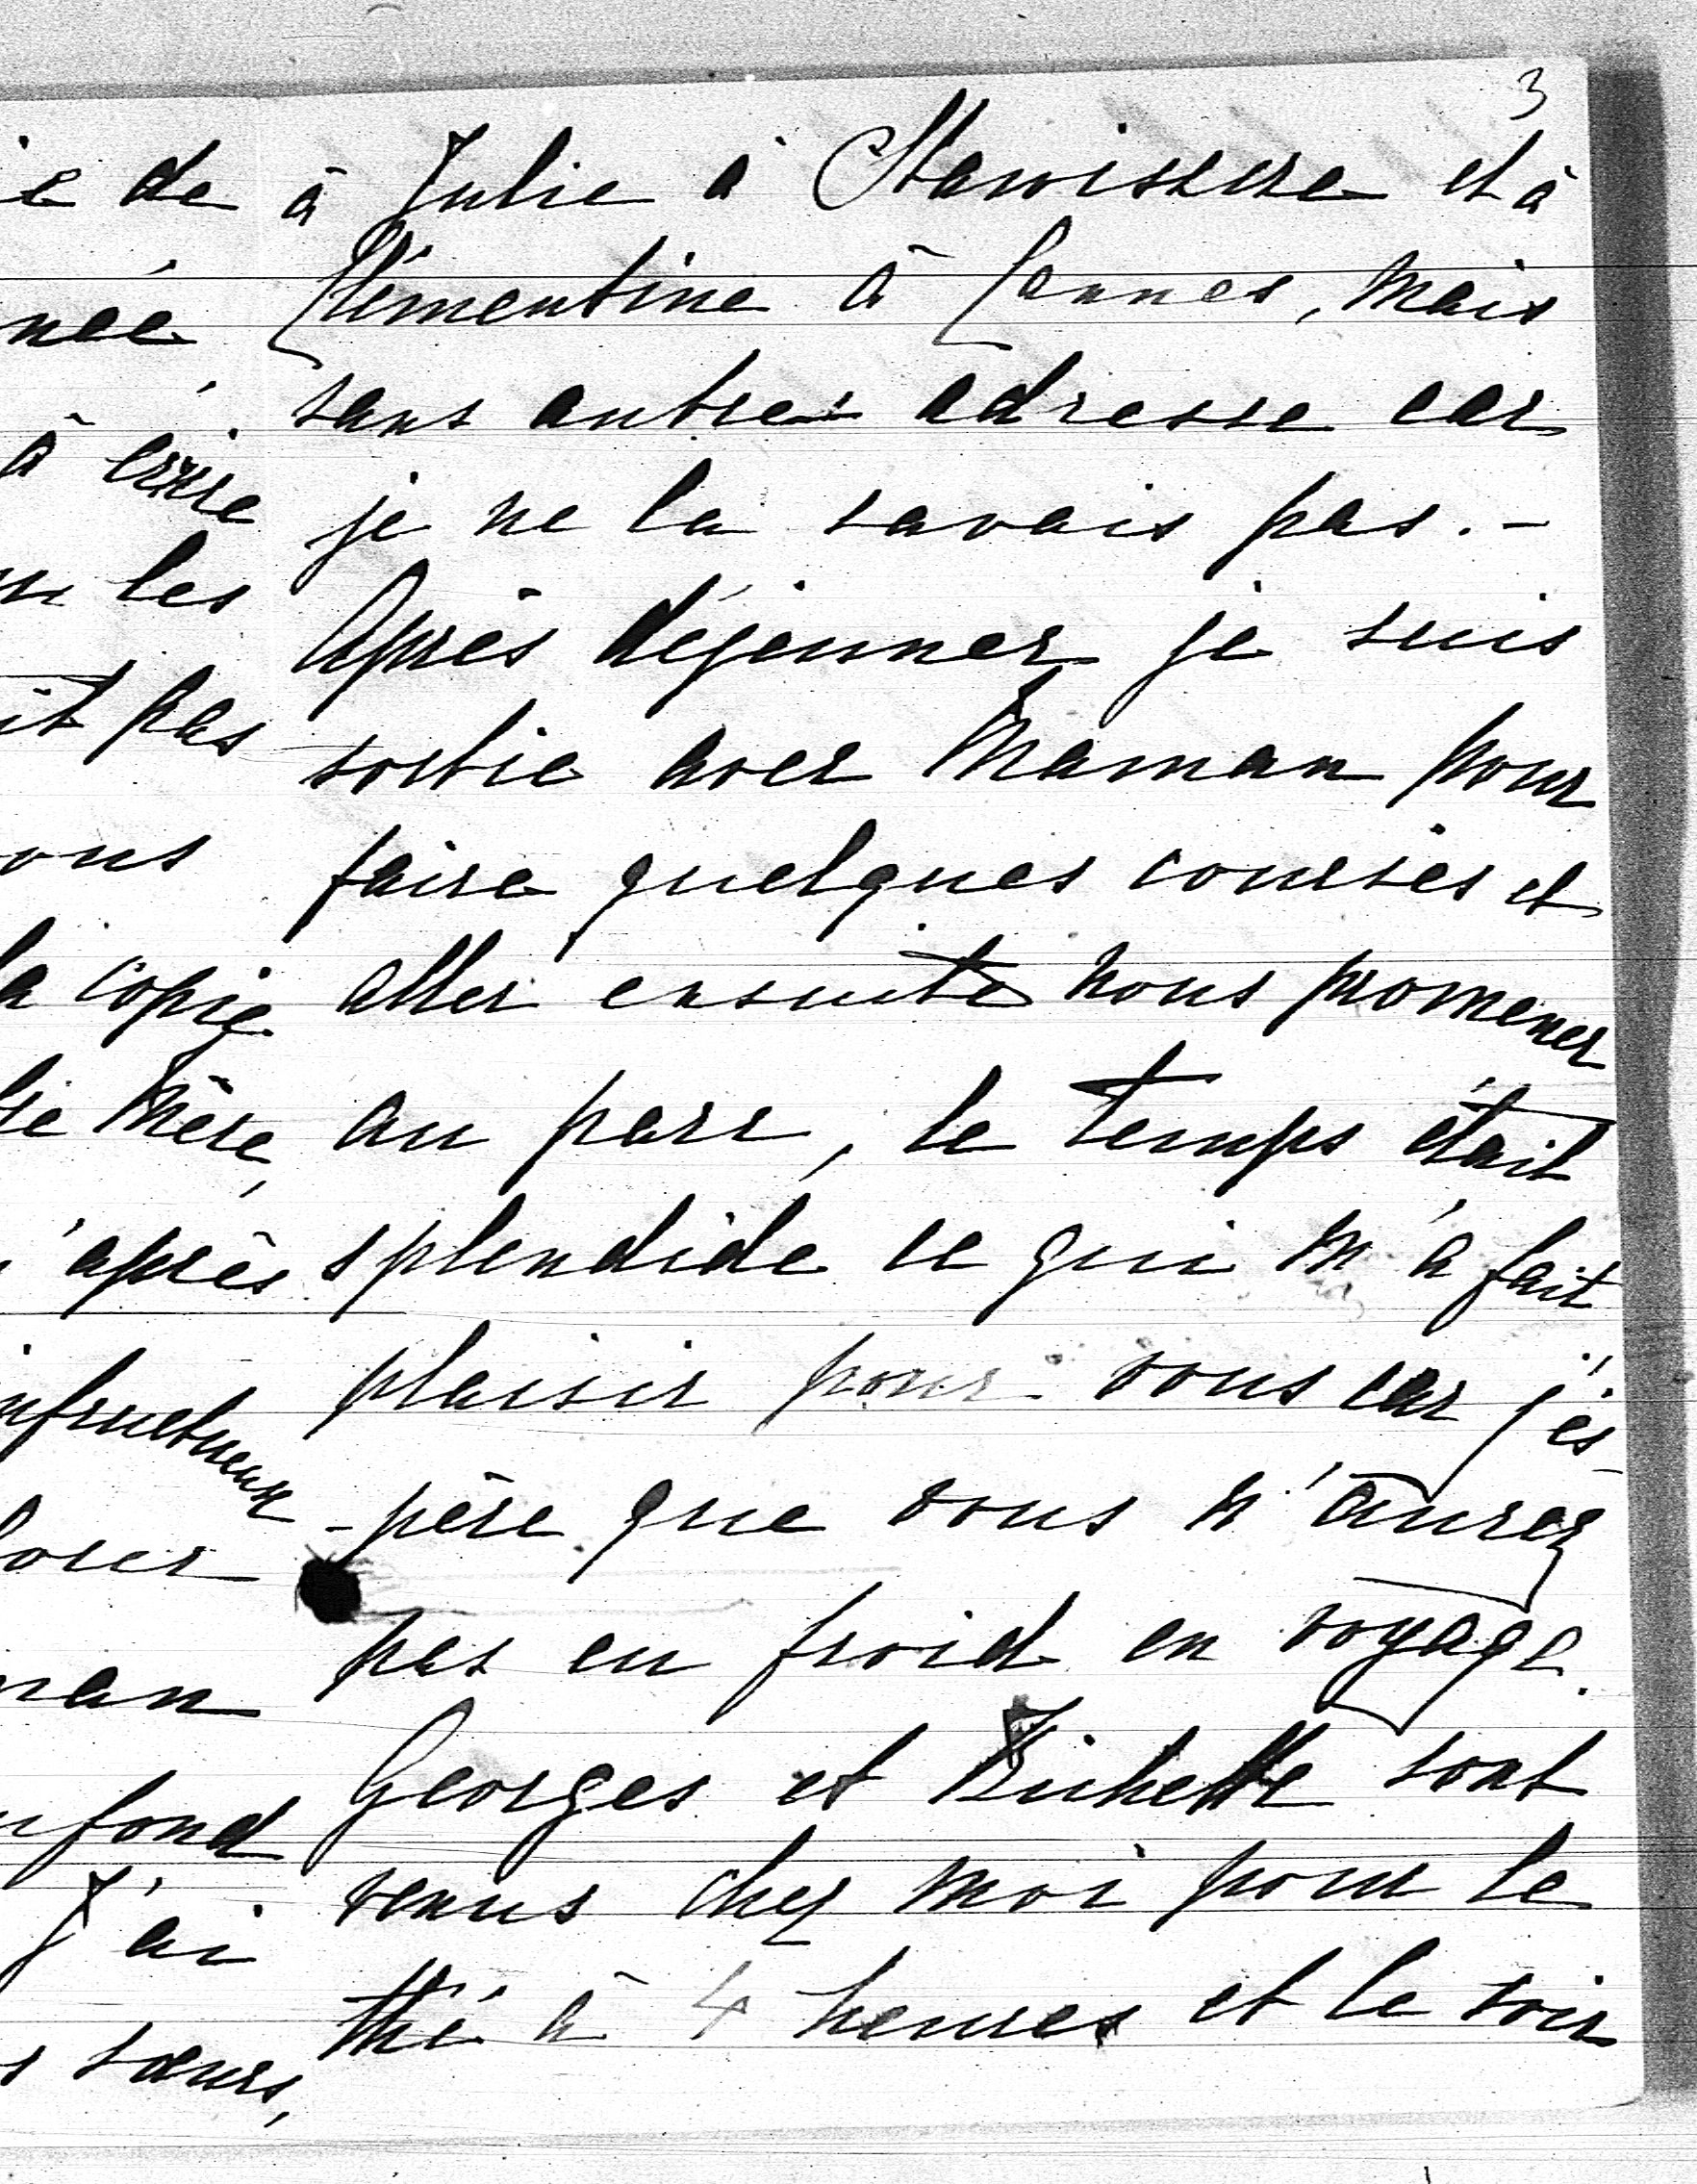 3
à Julie à et à
Clémentine à Cannes, mais
sans autres adresse car
je ne la savais pas. -
Après déjeuner je suis
sortie avec Maman pour
faire quelques courses et
aller ensuite nous promener
au parc, le temps était
splendide ce qui m'a fait
plaisir pour vous car j'es-
-père que vous n'aurez
pas eu froid en voyage.
Georges et sont
venus chez moi pour le
thé à 4 heures et le soir
e de
née
à écrire
les
it pas
ous
la copie
Mère,
après
infructueux
man
fond
J'ai
sœurs,